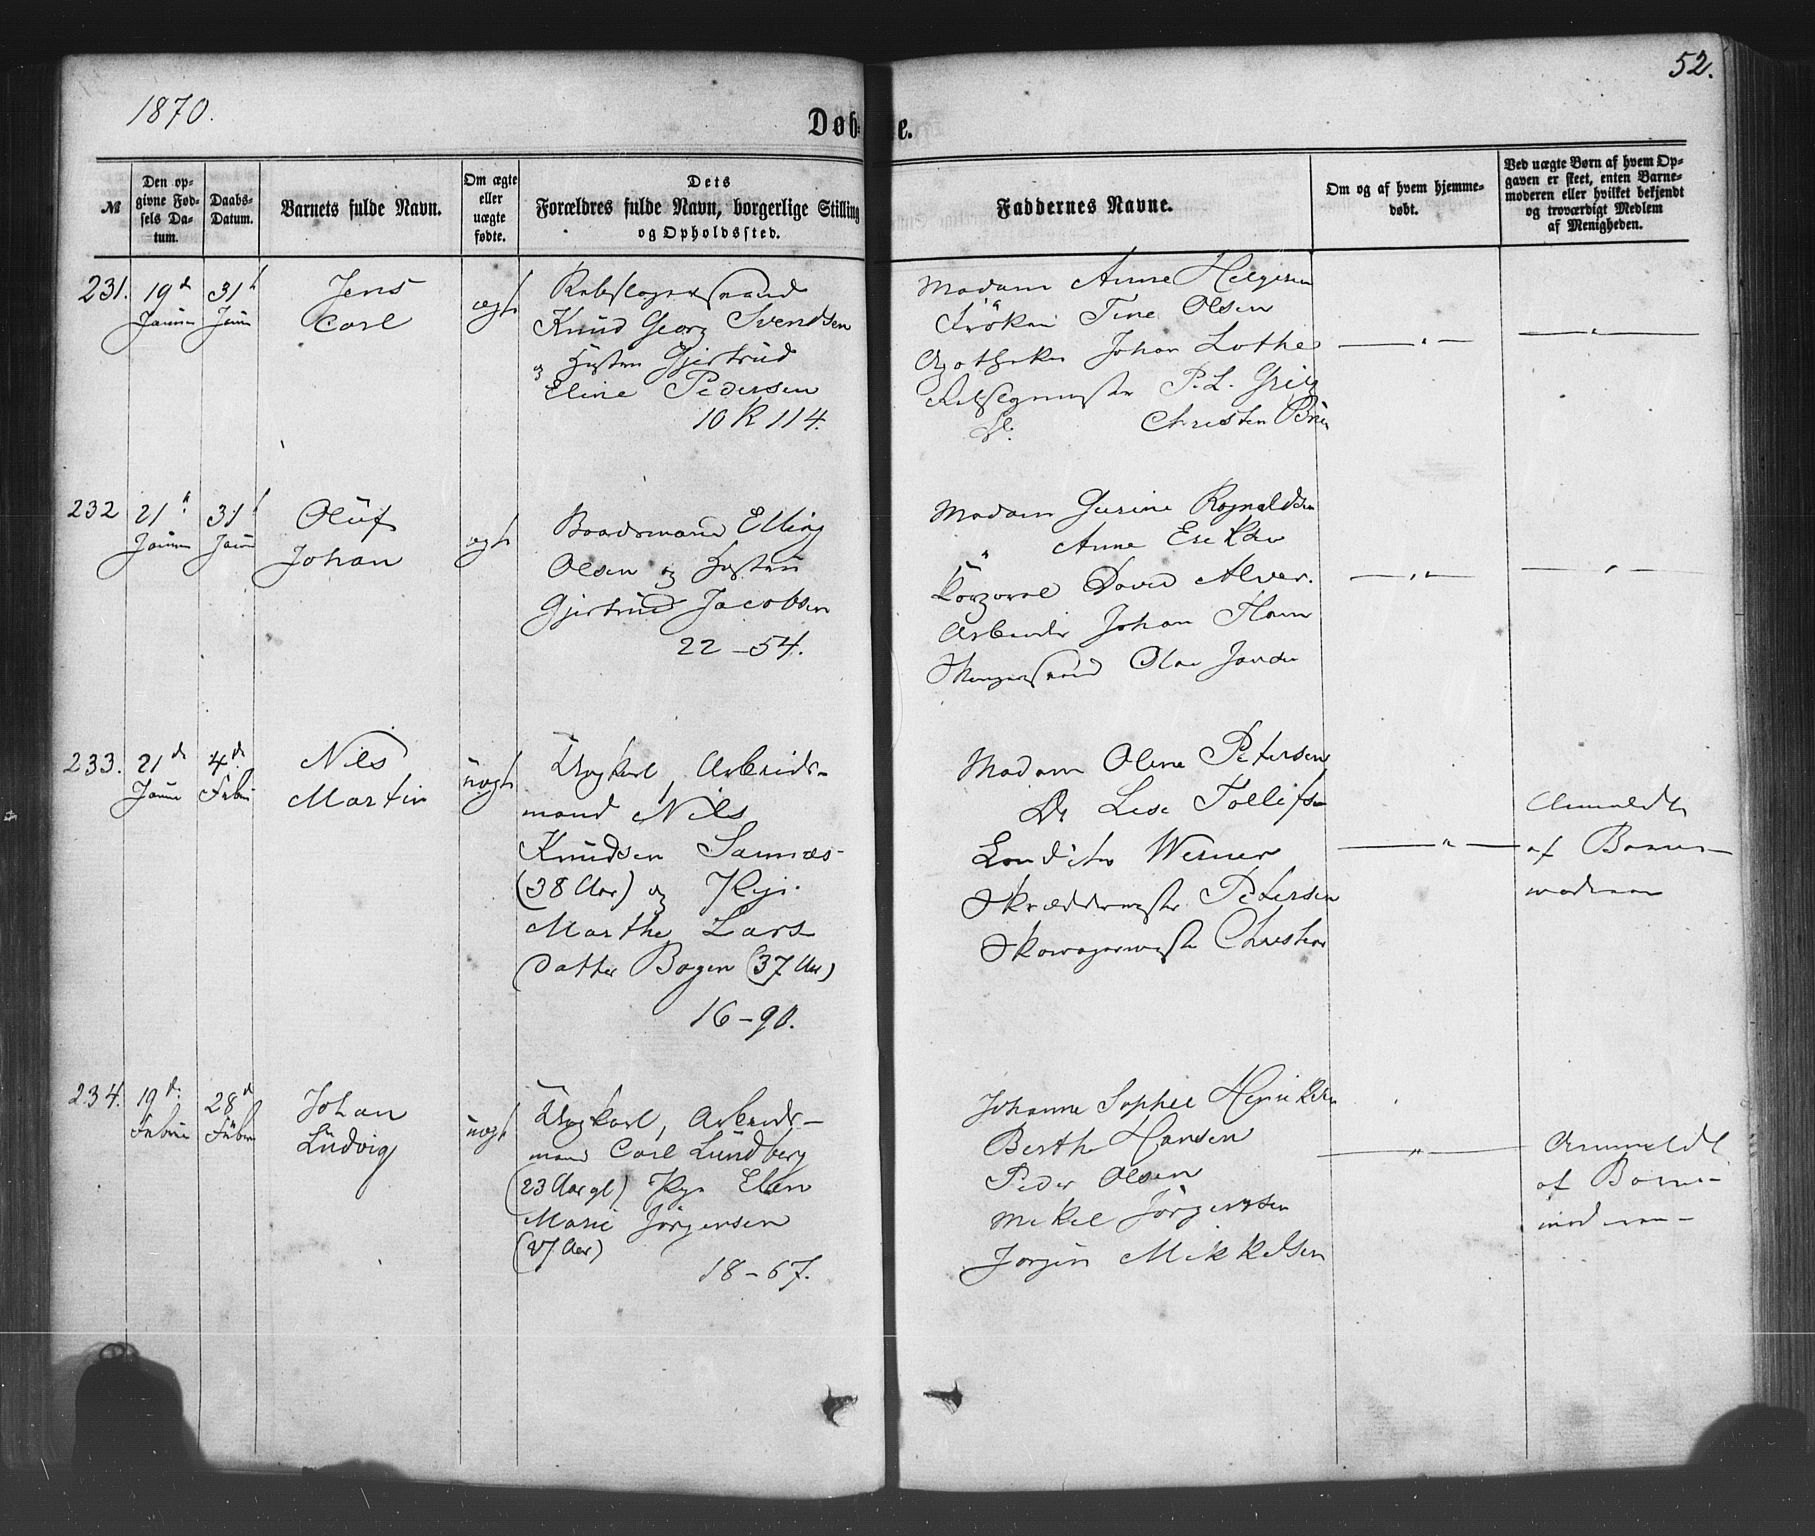 1870.
52.
Døbte.
№
Den opgivne Fødsels Datum.
Daabs-Datum.
Barnets fulde Navn.
Om ægte eller uægte fødte.
Dets Forældres fulde Navn, borgerlige Stilling og Opholdssted.
Faddernes Navne.
Om og af hvem hjemmedøbt.
Ved uægte Børn af hvem Opgaven er skeet, enten Barnemoderen eller hvilket bekjendt og troværdigt Medlem af Menigheden.
231.
19d
31t
Jens
Carl
ægt
Knud Georg Svendsen
og Hustru Gjertrud
Eline Pedersen
10 R 114.
Madam Anne Helgesen
Frøken Tine Olsen
Apotheker Johan Lothe
P. L. Grieg
Christen
232
21
31t
Oluf
Johan
ægt
Baadsmand Elling
Olsen og Hustru
Gjertrud Jacobsen
22 - 54.
Madam Gurine
Anne
Korporal David Alver.
Arbeider Johan
Olai
233.
21d
4d
Nils
Martin
uægt
Ungkarl, Arbeids-
mand Nils
Knudsen Sannæs
(38 Aar) og Pige
Marthe Lars
datter Bogen (37 Aar)
16 - 90.
Madam Olene Petersen
Do Lise Tollefsen
Conditor Werner
Skræddermester Petersen
Skomagermester
Anmeldt
af Barne-
moderen
234.
19d
28d
Johan
Ludvig
uægt
Ungkarl, Arbeids-
mand Carl Lundberg
(23 Aar gl) Pige Elen
Marie Jörgensen
(27 Aar)
18 - 67.
Johanne Sophie Henriksen
Berthe Hansen
Peder Olsen
Mikel Jörgensen
Jörgen Mikkelsen
Anmeldt
af Barne-
moderen -